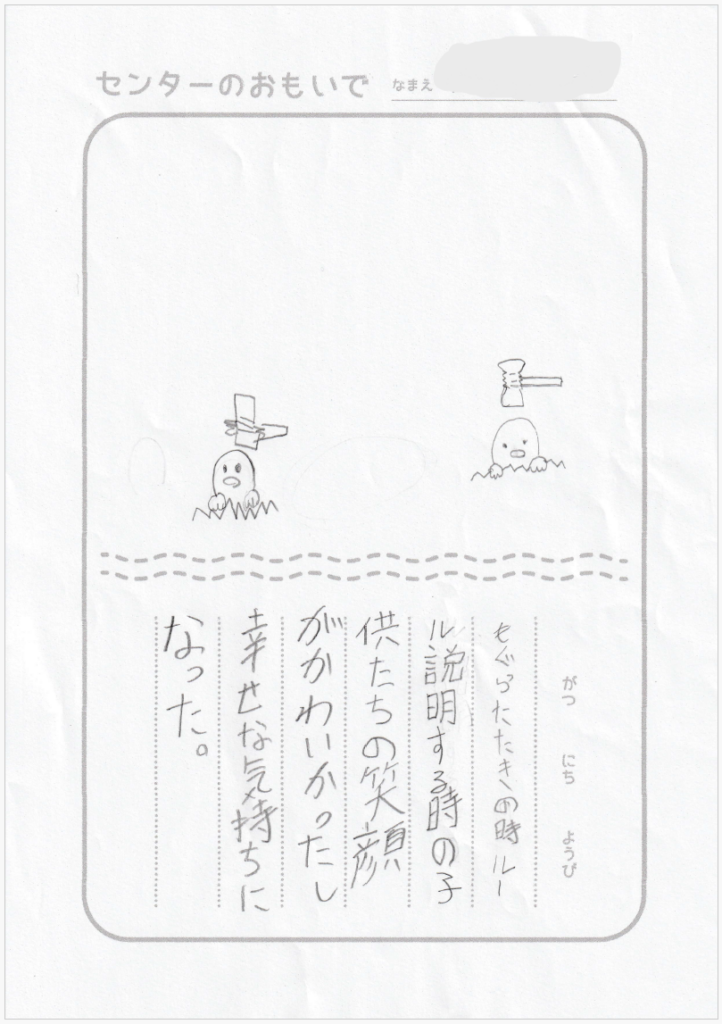 センターのおもいで
なまえ
がつ にち ようび
もぐらたたきの時ルー
ル説明する時の子
供たちの笑顔
がかわいかったし
幸せな気持ちに
なった。